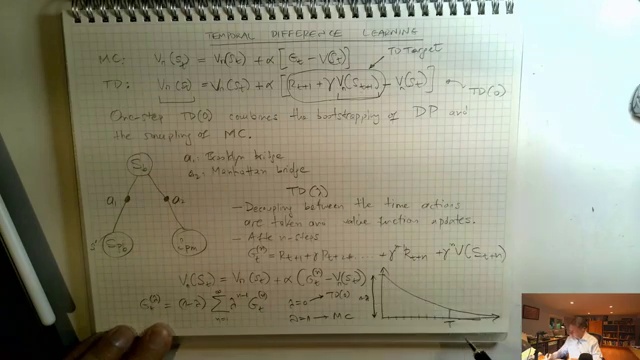 TEMPORAL DIFFERENCE LEARNING
MC: Vπ(St) = Vπ(St) + α [Gt - V(St)]
TD Target
TD: Vπ(St) = Vπ(St) + α [Rt+1 + γ Vπ(St+1) - Vπ(St)]
TD(0)
One-step TD(0) combines the bootstrapping of DP and
the sampling of MC.
a1: Brooklyn bridge
a2: Manhattan bridge
a1
a2
TD(λ)
- Decoupling between the time actions
are taken and value function updates.
- After n-steps
Vπ(St) = Vπ(St) + α (Gt(λ) - Vπ(St))
λ=0 → TD(0)
→ MC
T